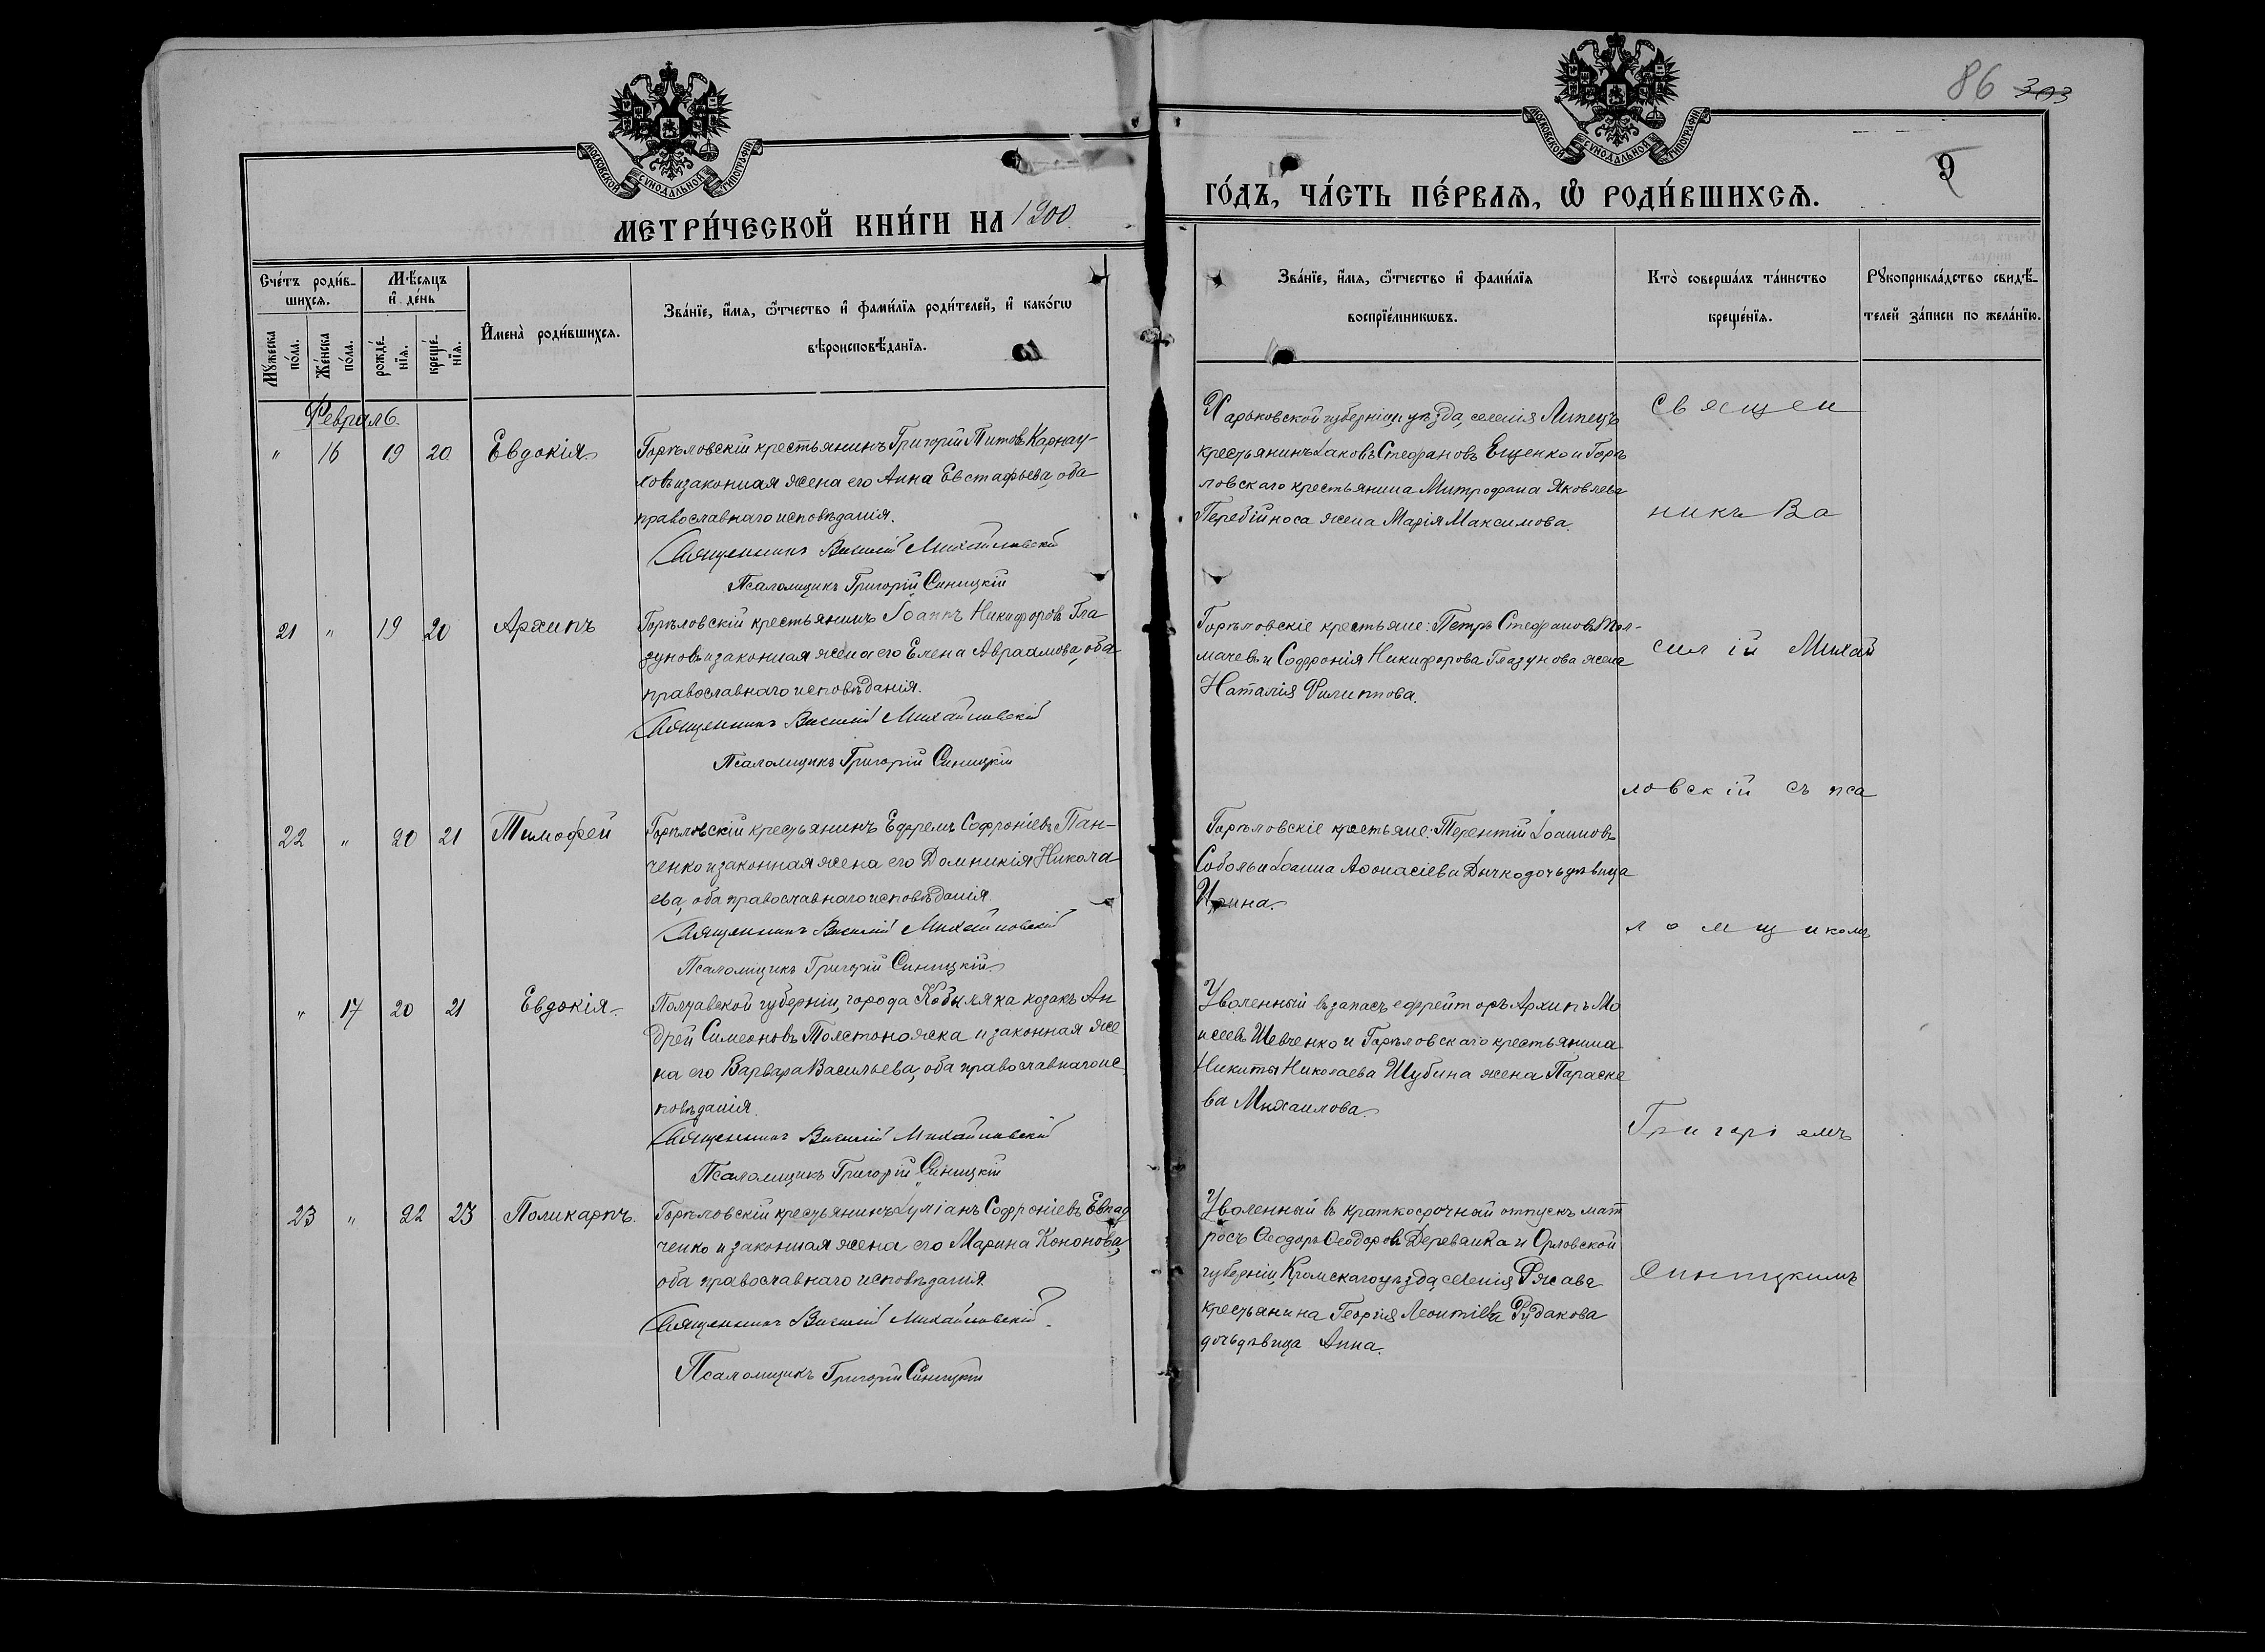 86 303
МОСКОВСКОЙ СУНОДАЛЬНОЙ ТИПОГРАФІИ
МОСКОВСКОЙ СУНОДАЛЬНОЙ ТИПОГРАФІИ
9
МЕТРИ́ЧЕСКОЙ КНИ́ГИ НА 1900
ГО́ДЪ, ЧА́СТЬ ПЕ́РВАѦ, Ѽ РОДИ́ВШИХСѦ.
Сче́тъ роди́в-
шихсѧ.
Мѣ́сѧцъ
и҆ де́нь
Мꙋжеска
по́ла.
Же́нска
по́ла.
рожде́-
нїѧ.
креще́-
нїѧ.
И҆мена̀ роди́вшихсѧ.
Зва́нїе, и҆́мѧ, ѻ҆́тчество и҆ фами́лїѧ роди́телей, и҆ како́гѡ
вѣроисповѣ́данїѧ.
Зва́нїе, и҆́мѧ, ѻ҆́тчество и҆ фами́лїѧ
воспрїе́мникѡвъ.
Кто̀ соверша́лъ та́инство
креще́нїѧ.
Рꙋкоприкла́дство свидѣ́-
телей за́писи по жела́нїю.
Февраль.
" 16 19 20 Евдокія
Горѣловскій крестьянинъ Григорій Титовъ Карнау-
ховъ и законная жена его Анна Евстафьева, оба
православнаго исповѣданія.
Священникъ Василій Михайловскій
Псаломщикъ Григорій Синицкій
Харьковской губерніи, уѣзда, селенія Липецъ
крестьянинъ Іаковъ Стефановъ Ещенко и Горѣ
ловскаго крестьянина Митрофана Яковлева
Перебійноса жена Марія Максимова.
21 " 19 20 Архипъ
Горѣловскій крестьянинъ Іоаннъ Никифоровъ Гла-
зуновъ и законная жена его Елена Авраамова, оба
православнаго исповѣданія.
Священникъ Василій Михайловскій
Псаломщикъ Григорій Синицкій
Горѣловскіе крестьяне: Петръ Стефановъ Тол-
мачевъ и Софронія Никифорова Глазунова жена
Наталія Филиппова.
22 " 20 21 Тимофей
Горѣловскій крестьянинъ Ефремъ Софроніевъ Пан-
ченко и законная жена его Домникія Никола
ева, оба православнаго исповѣданія.
Священникъ Василій Михайловскій
Псаломщикъ Григорій Синицкій
Горѣловскіе крестьяне: Терентій Іоанновъ
Соболь и Іоанна Аѳонасіева Дычко дочь дѣвица
Ирина.
" 17 20 21 Евдокія
Полтавской губерніи, города Кобыляка козакъ Ан
дрей Симеоновъ Толстоножка и законная же
на его Варвара Васильева, оба православнаго ис
повѣданія.
Священникъ Василій Михайловскій
Псаломщикъ Григорій Синицкій
Уволенный въ запасъ ефрейторъ Архипъ Мо
исеевъ Шевченко и Горѣловскаго крестьянина
Никиты Николаева Шубина жена Параске
ва Михаилова.
23 " 22 23 Поликарпъ.
Горѣловскій крестьянинъ Іуліанъ Софроніевъ
ченко и законная жена его Марина Кононова,
оба православнаго исповѣданія.
Священникъ Василій Михайловскій.
Псаломщикъ Григорій Синицкій
Уволенный въ краткосрочный отпускъ мат
росъ Ѳеодоръ Ѳеодоровъ Деревянка и Орловской
губерніи, Кромскаго уѣзда, селенія Ржава
крестьянина Георгія Леонтіева Рудакова
дочь дѣвица Анна.
Священ
никъ Ва
силій Михай
ловскій съ пса
ломщикомъ
Григоріемъ
Синицкимъ